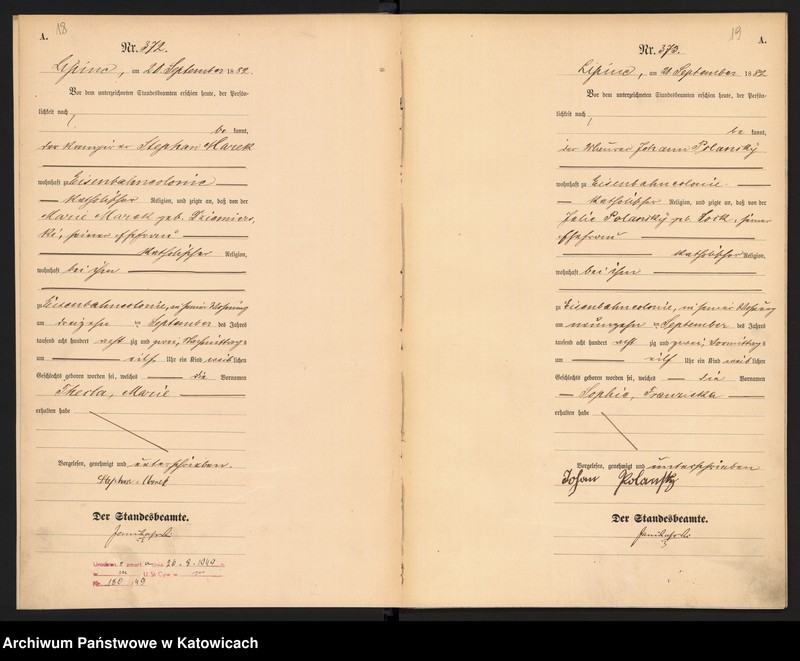 18
A.
Nr. 372.
Lipine, am 21 September 1882.
Vor dem unterzeichneten Standesbeamten erschien heute, der Persön-
lichkeit nach
be kannt,
der Stephan Marek
wohnhaft zu Eisenbahncolonie
katholischer Religion, und zeigte an, daß von der
Marie Marek geb.
seiner Ehefrau
katholischer Religion,
wohnhaft bei ihm
zu Eisenbahncolonie, in seiner Wohnung
am dreizehn ten September des Jahres
tausend acht hundert acht zig und zwei, Nachmittags
um eilf Uhr ein Kind weib lichen
Geschlechts geboren worden sei, welches die Vornamen
Thecla, Marie
erhalten habe
Vorgelesen, genehmigt und unterschrieben.
Stephan Marek
Der Standesbeamte.
26. 8. 1949
Nr. 180 / 49
19
A.
Nr. 373.
Lipine, am 21 September 1882
Vor dem unterzeichneten Standesbeamten erschien heute, der Persön-
lichkeit nach
be kannt,
der Maurer Johann Polansky
wohnhaft zu Eisenbahncolonie
katholischer Religion, und zeigte an, daß von der
Julie Polansky geb. seiner
Ehefrau
katholischer Religion,
wohnhaft bei ihm
zu Eisenbahncolonie, in seiner Wohnung
am neunzehn ten September des Jahres
tausend acht hundert acht zig und zwei, Vormittags
um eilf Uhr ein Kind weib lichen
Geschlechts geboren worden sei, welches die Vornamen
Sophie, Franziska
erhalten habe
Vorgelesen, genehmigt und unterschrieben
Johan Polansky
Der Standesbeamte.
Archiwum Państwowe w Katowicach